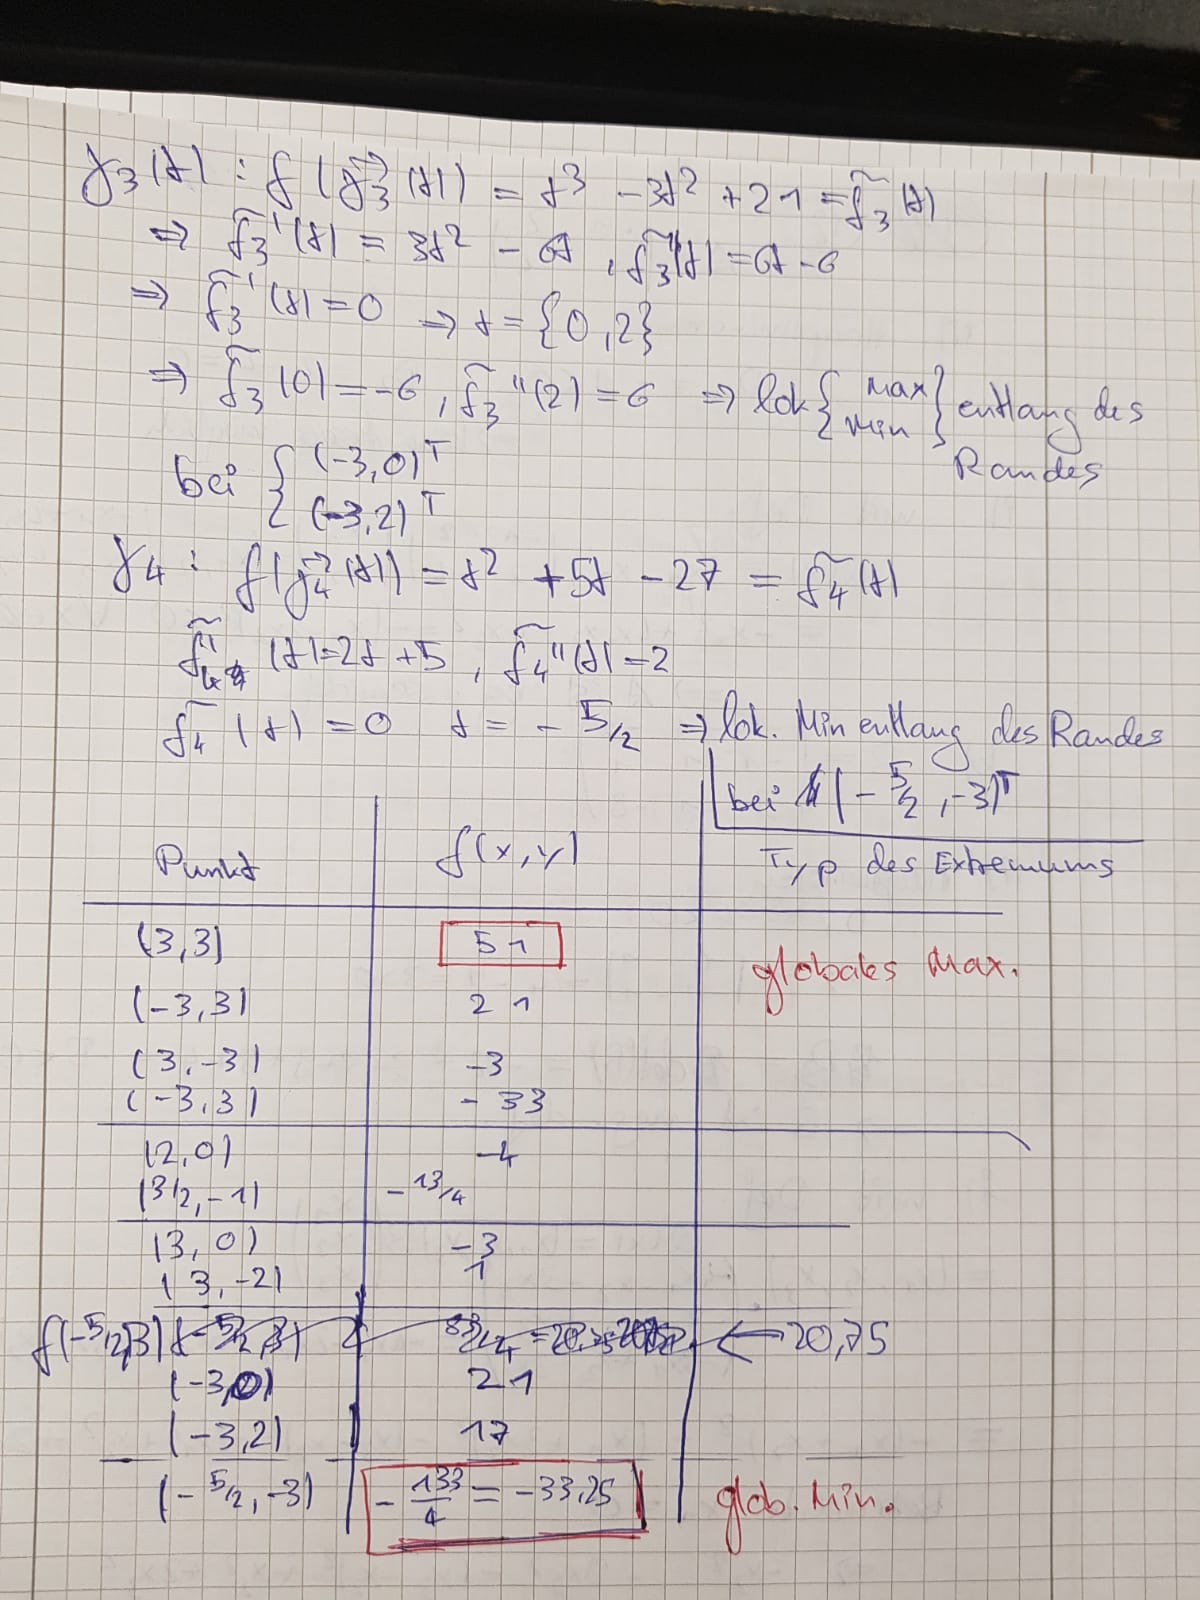 γ₃(t) : f(γ₃→(t)) = t³ - 3t² + 21 = f̃₃(t)
⇒ f̃₃'(t) = 3t² - 6t , f̃₃''(t) = 6t - 6
⇒ f̃₃'(t) = 0 ⇒ t = {0,2}
⇒ f̃₃(0) = -6 , f̃₃''(2) = 6 ⇒ lok { Max Min } entlang des Randes
bei { (-3,0)ᵀ (-3,2)ᵀ
γ₄ : f(γ₄→(t)) = t² + 5t - 27 = f̃₄(t)
f̃₄'(t) = 2t + 5 , f̃₄''(t) = 2
f̃₄(t) = 0 t = - 5/2 ⇒ lok. Min entlang des Randes
bei (- 5/2 , -3)ᵀ
Punkt f(x,y) Typ des Extremums
(3,3) 51 globales Max.
(-3,3) 21
(3,-3) -3
(-3,3) -33
(2,0) -4
(3/2,-1) -13/4
(3,0) -3
(3,-2) 1
f(-5/2,3) ← 20,75
(-3,0) 21
(-3,2) 17
(-5/2,-3) - 133/4 = -33,25 glob. Min.